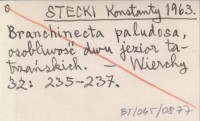 STECKI Konstanty 1963.
Branchinecta paludosa,
osobliwość dwu jezior ta-
trzańskich. — Wierchy
32: 235-237.
BT/045/0877